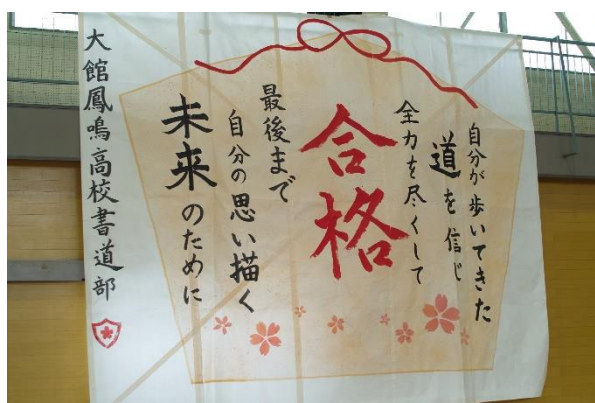 自分が歩いてきた
道を信じ
全力を尽くして
合格
最後まで
自分の思い描く
未来のために
大館鳳鳴高校書道部